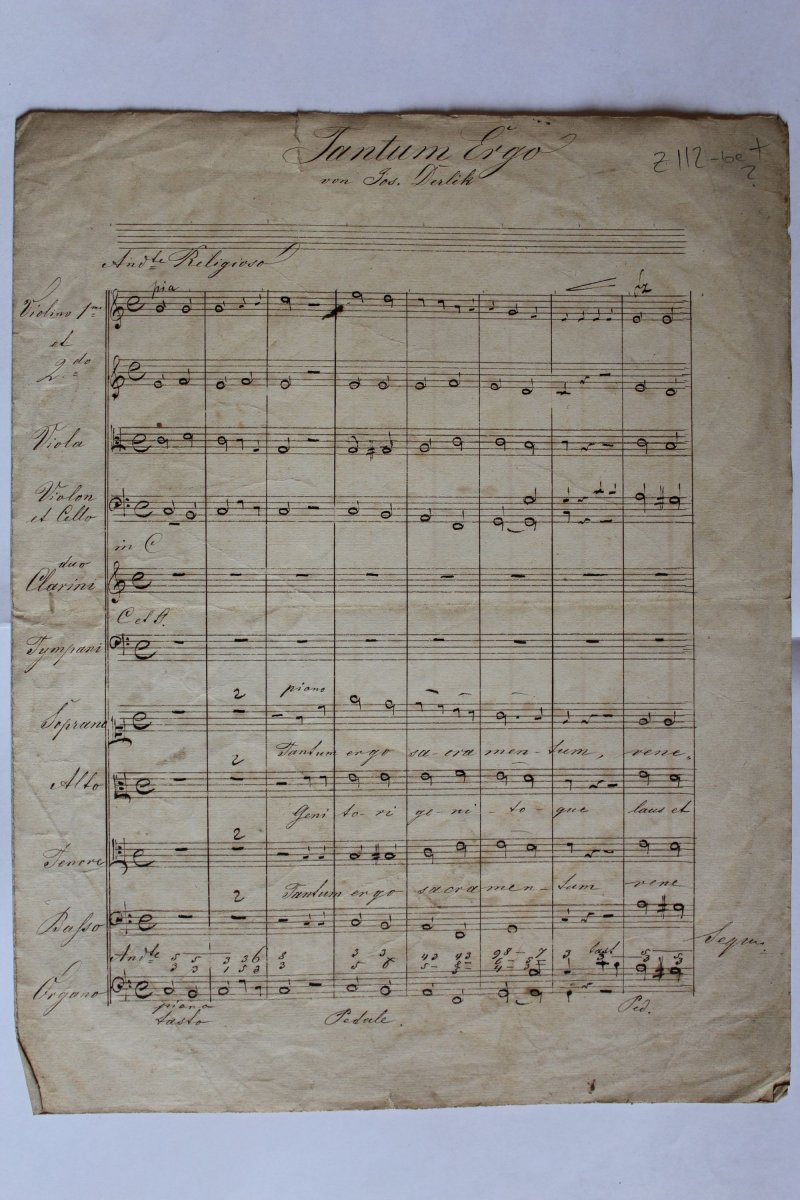 Tantum Ergo
von Jos. Derlik
Z 112
And.te Religioso
pia
fz
Violino 1mo
et
2.do
Viola
Violon
et Cello
in C
duo
Clarini
C et G.
Tympani
2
piano
Soprano
Tantum ergo sa-cra-men-tum, vene-
2
Alto
Geni-to-ri ge-ni-to-que laus et
2
Tenore
Tantum ergo sacramen-tum vene
2
Basso
Segue.
And.te
Organo
piano
tasto
Pedale.
Ped.